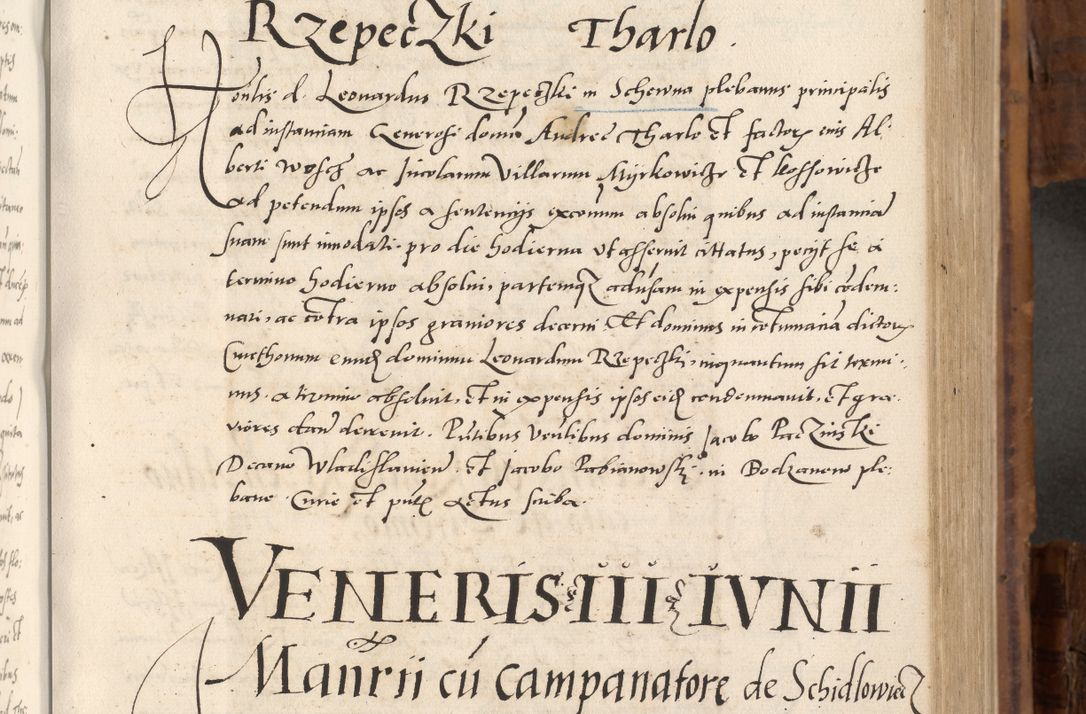 RzepecZki Tharlo.
Honlis d. Leonardus RzepecZki in Schewna plebanus principalis
ad instantiam Generosi domi Andree Tharlo et factor eius Al-
berti Wosch ac Incolarum Villarum Myrkowicze et Kossowicze
ad petendum ipsos a sententiis exconum absolui quibus ad instantia
suam sunt innodati. pro die hodierna ut asseruit cittatus, pecyt se a
termino hodierno absolui, partemq aduersam in expensis sibi codem-
nari, ac cotra ipsos graviores decerni. Et dominus in cotumatia dictor
Cmethonum eund dominum Leonardum Rzepeczki, inquantum fit termi-
nus. a termino absoluit, et in expensis ipsos eid condemnauit, et gra-
viores decreuit. Pntibus Venlibus dominis Jacobo PacZinski
Decano Wladislauien. et Jacobo Rabianowski, in Bodzanow ple-
bano. Curie et pntis Actus scriba.
VENERIS III IVNII
Maurii cu campanatore de Schidlowiecz